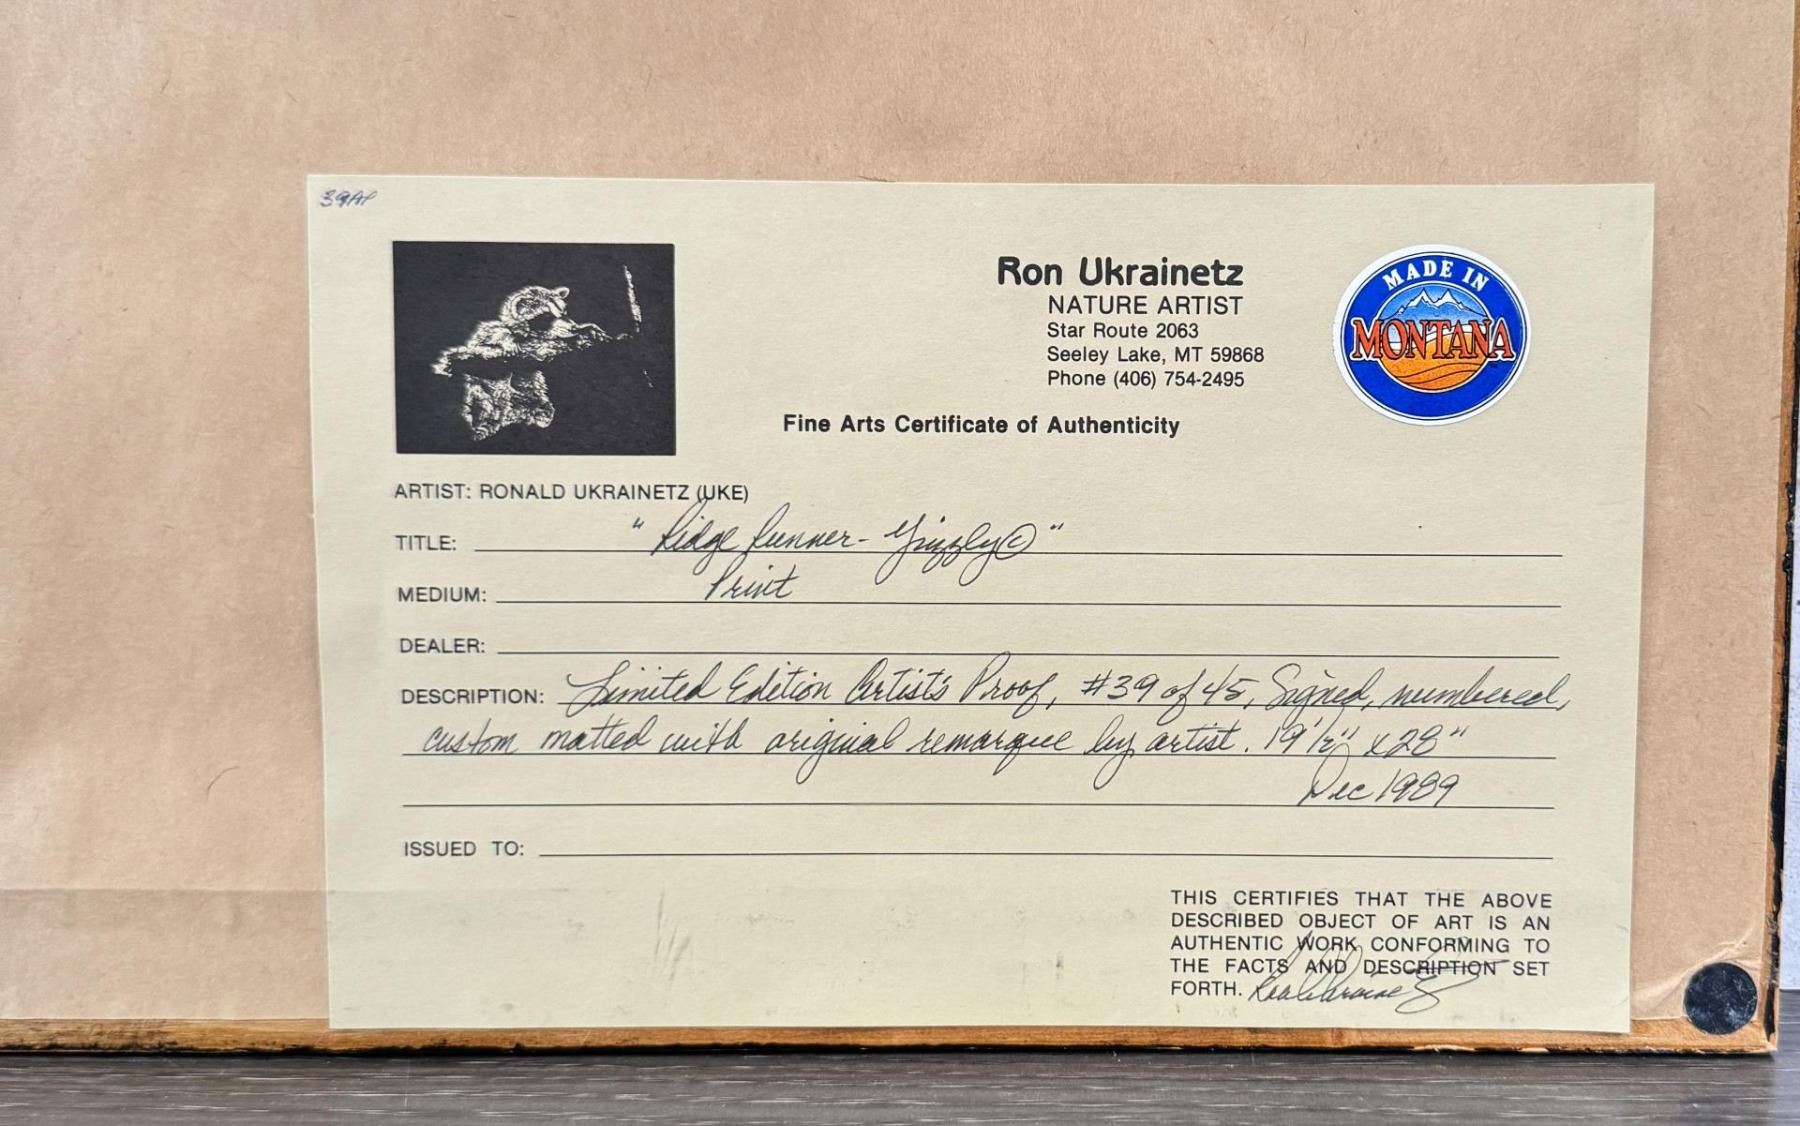 39AP
Ron Ukrainetz
NATURE ARTIST
Star Route 2063
Seeley Lake, MT 59868
Phone (406) 754-2495
MADE IN
MONTANA
Fine Arts Certificate of Authenticity
ARTIST: RONALD UKRAINETZ (UKE)
TITLE: "Ridge Runner - Grizzly©"
MEDIUM: Print
DEALER:
DESCRIPTION: Limited Edition Artist's Proof, #39 of 45, Signed, numbered,
custom matted with original remarque by artist. 19 1/2" x 28"
Dec 1989
ISSUED TO:
THIS CERTIFIES THAT THE ABOVE
DESCRIBED OBJECT OF ART IS AN
AUTHENTIC WORK CONFORMING TO
THE FACTS AND DESCRIPTION SET
FORTH. Ron Ukrainetz